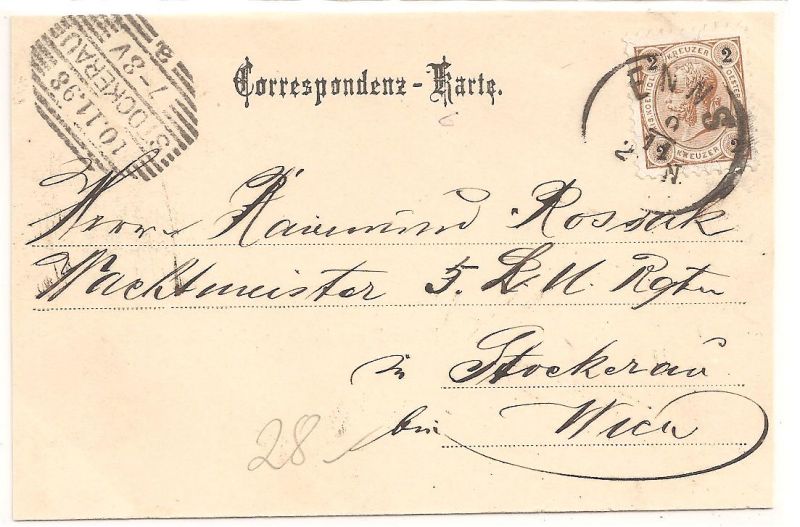 STOCKERAU
10.11.98
7-8V
a
STOCKERAU
Correspondenz-Karte.
2 KREUZER 2
2 KREUZER 2
ENNS
Herrn Raimund Rossak
Wachtmeister 5. L. U. Rgtm
in Stockerau
bei Wien
28